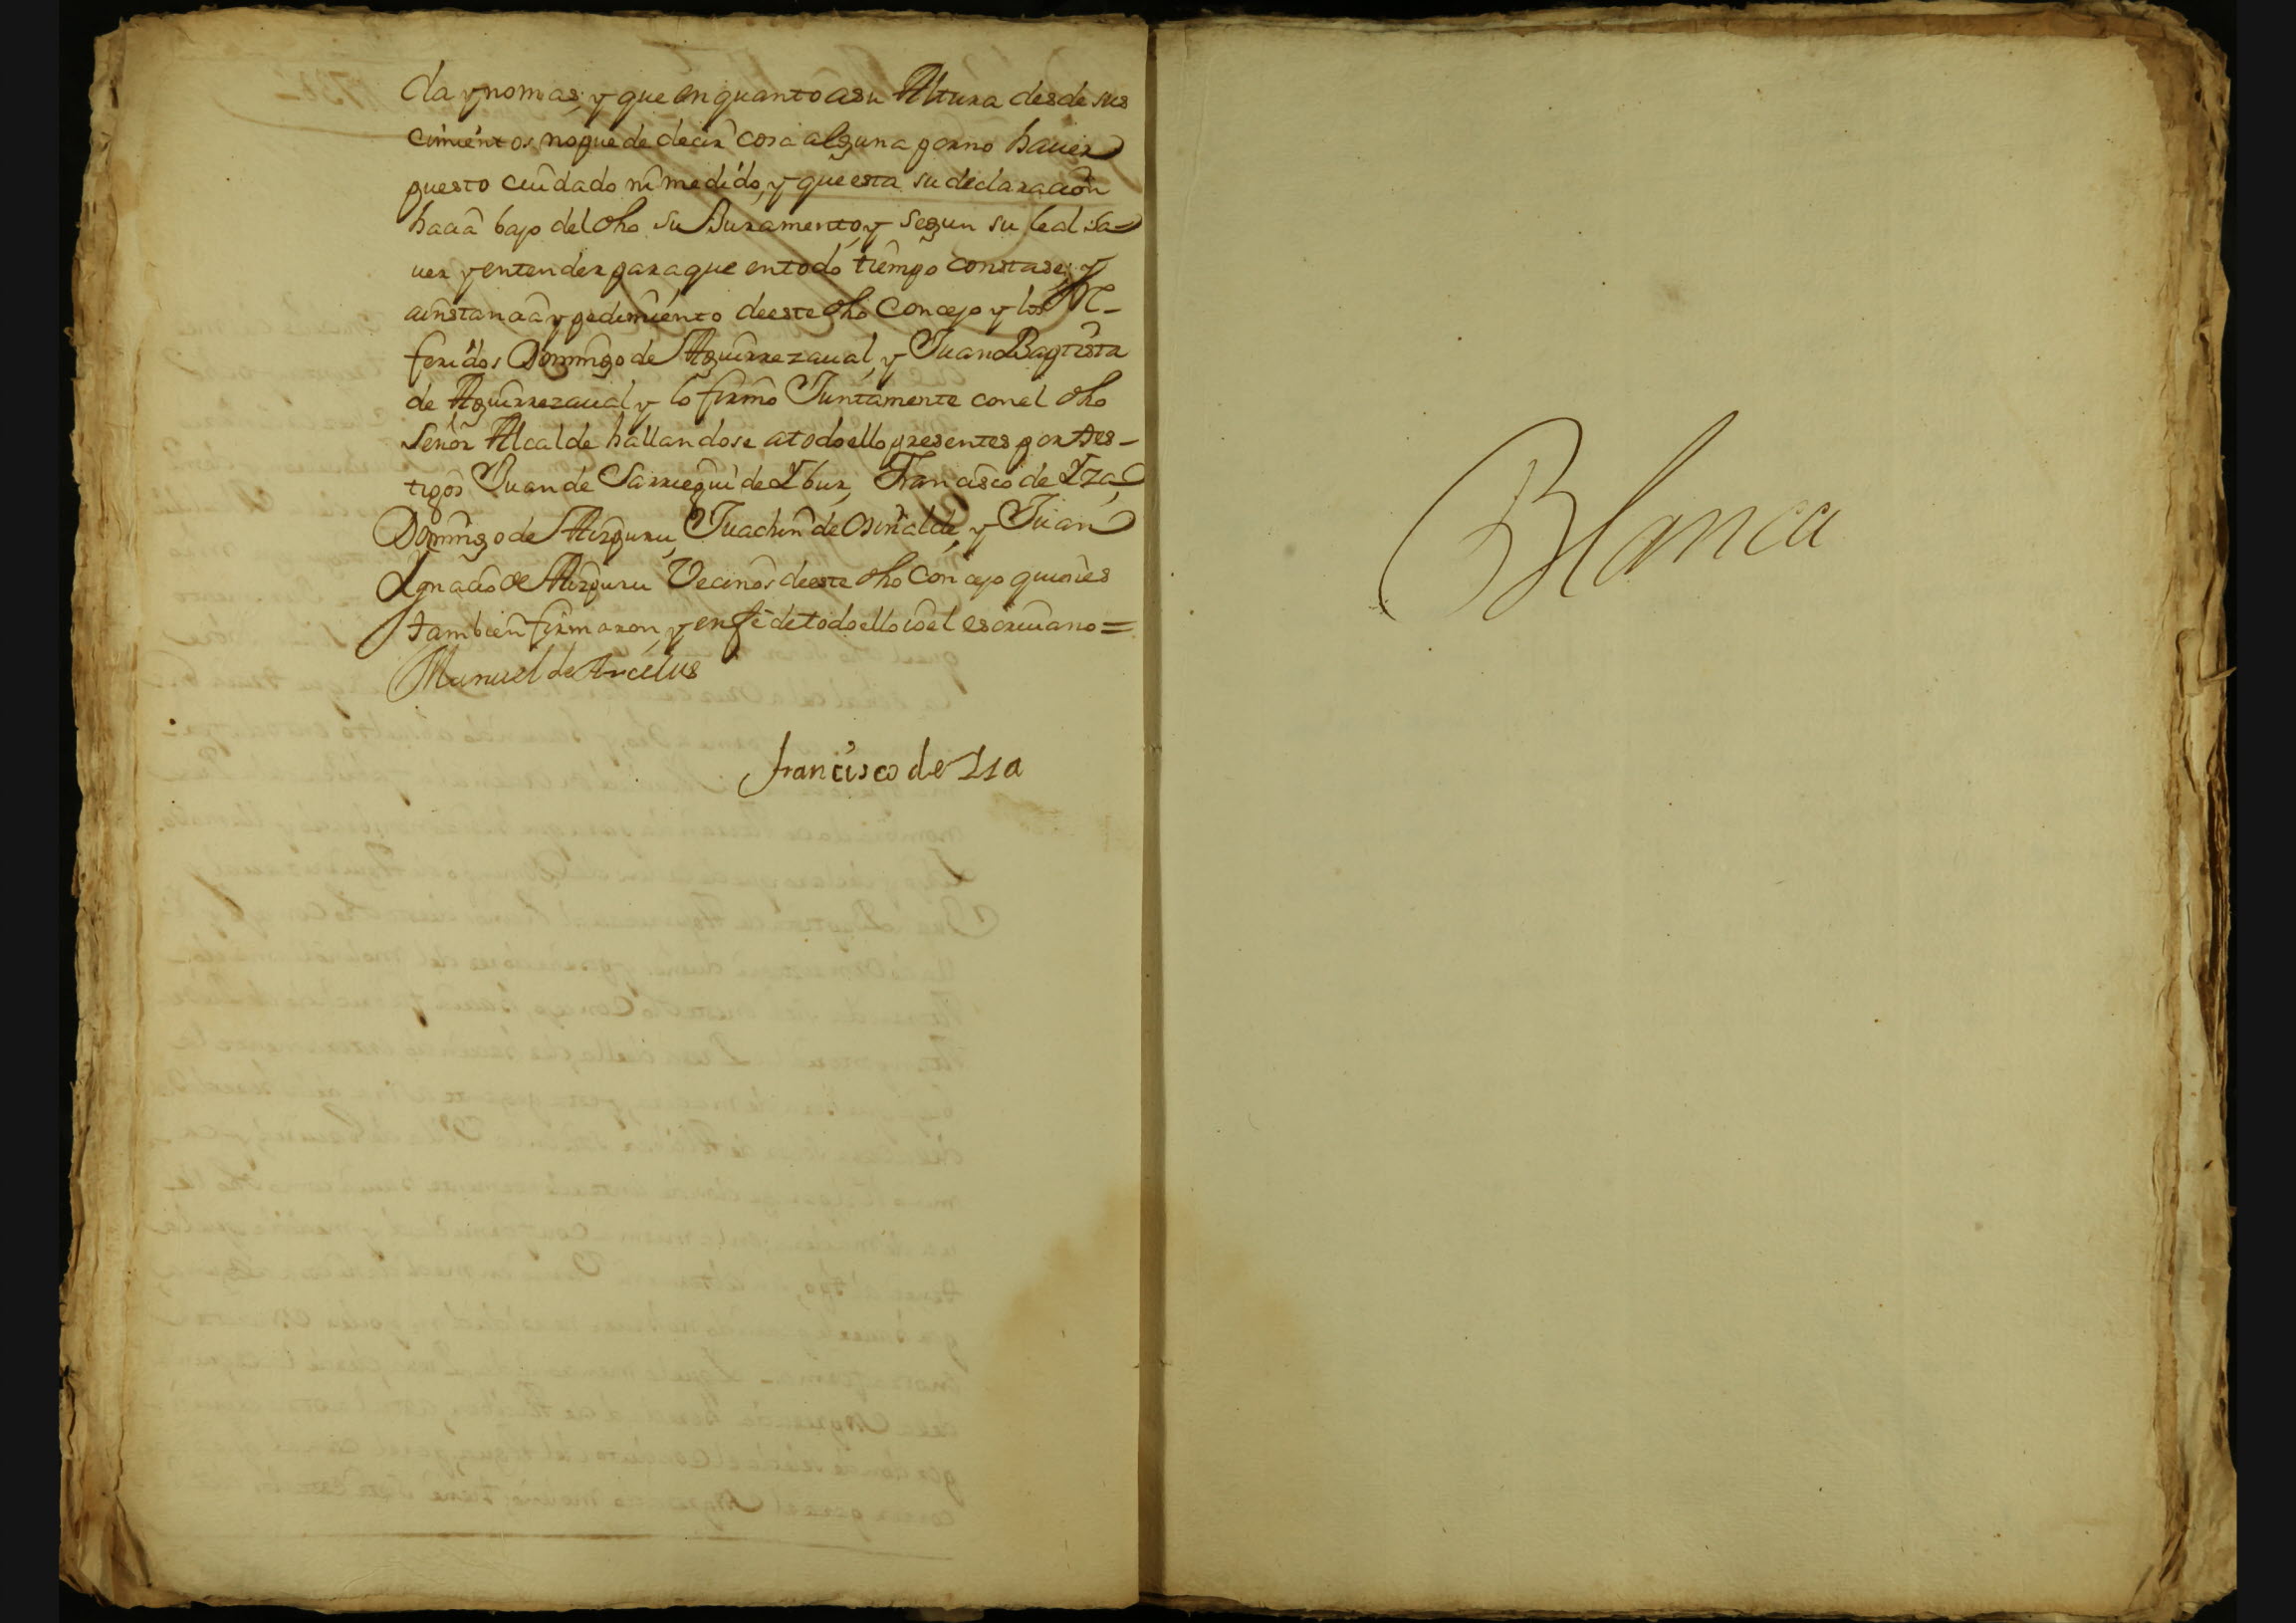 da y no mas; y que en quanto a su Altura desde sus
cimientos no puede decir cosa alguna por no hauer
puesto cuidado ni medido, y que esta su declaracion
hacia bajo del dho su Juramento, y segun su leal sa-
uer y entender para que en todo tiempo constase; y
a instancia y pedimiento de este dho Concejo y los Re-
feridos Domingo de Aguirrezaual, y Juan Baptista
de Aguirrezaual y lo firmò Juntamente con el dho
Señor Alcalde hallandose a todo ello presentes por tes-
tigos Juan de Sarriegui de Ybur, Francisco de Yza,
Domingo de Aizpuru, Juachin de Osinalde, y Juan
Ygnacio de Aizpuru Vecinos de este dho Concejo quienes
tambien firmaron, y en fè de todo ello io el escriuano =
Manuel de Arcelus
francisco de Isa
Blanca